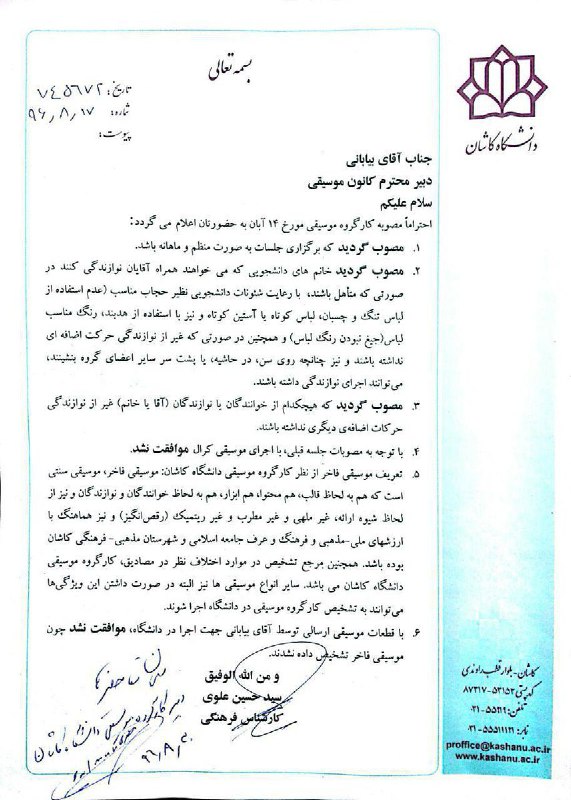 بسمه تعالی
تاریخ: ۷۴۵۶۷۲
شماره: ۹۶٫۸٫۱۷
پیوست:
دانشگاه کاشان
جناب آقای بیابانی
دبیر محترم کانون موسیقی
سلام علیکم
احتراماً مصوبه کارگروه موسیقی مورخ ۱۴ آبان به حضورتان اعلام می گردد:
۱. مصوب گردید که برگزاری جلسات به صورت منظم و ماهانه باشد.
۲. مصوب گردید خانم های دانشجویی که می خواهند همراه آقایان نوازندگی کنند در
صورتی که متأهل باشند، با رعایت شئونات دانشجویی نظیر حجاب مناسب (عدم استفاده از
لباس تنگ و چسبان، لباس کوتاه یا آستین کوتاه و نیز با استفاده از هدبند، رنگ مناسب
لباس(جیغ نبودن رنگ لباس) و همچنین در صورتی که غیر از نوازندگی حرکت اضافه ای
نداشته باشند و نیز چنانچه روی سن، در حاشیه، یا پشت سر سایر اعضای گروه بنشینند،
می‌توانند اجرای نوازندگی داشته باشند.
۳. مصوب گردید که هیچکدام از خوانندگان یا نوازندگان (آقا یا خانم) غیر از نوازندگی
حرکات اضافه‌ی دیگری نداشته باشند.
۴. با توجه به مصوبات جلسه قبلی، با اجرای موسیقی کرال موافقت نشد.
۵. تعریف موسیقی فاخر از نظر کارگروه موسیقی دانشگاه کاشان: موسیقی فاخر، موسیقی سنتی
است که هم به لحاظ قالب، هم محتوا، هم ابزار، هم به لحاظ خوانندگان و نوازندگان و نیز از
لحاظ شیوه ارائه، غیر ملهی و غیر مطرب و غیر ریتمیک (رقص‌انگیز) و نیز هماهنگ با
ارزشهای ملی-مذهبی و فرهنگ و عرف جامعه اسلامی و شهرستان مذهبی- فرهنگی کاشان
بوده باشد. همچنین مرجع تشخیص در موارد اختلاف نظر در مصادیق، کارگروه موسیقی
دانشگاه کاشان می باشد. سایر انواع موسیقی ها نیز البته در صورت داشتن این ویژگی‌ها
می‌توانند به تشخیص کارگروه موسیقی در دانشگاه اجرا شوند.
۶. با قطعات موسیقی ارسالی توسط آقای بیابانی جهت اجرا در دانشگاه، موافقت نشد چون
موسیقی فاخر تشخیص داده نشدند.
و من الله التوفیق
سید حسین علوی
کارشناس فرهنگی
دبیر کارگروه موسیقی دانشگاه کاشان
کاشان- بلوار قطب راوندی
کدپستی: ۸۷۳۱۷-۵۳۱۵۳
proffice@kashanu.ac.ir
www.kashanu.ac.ir